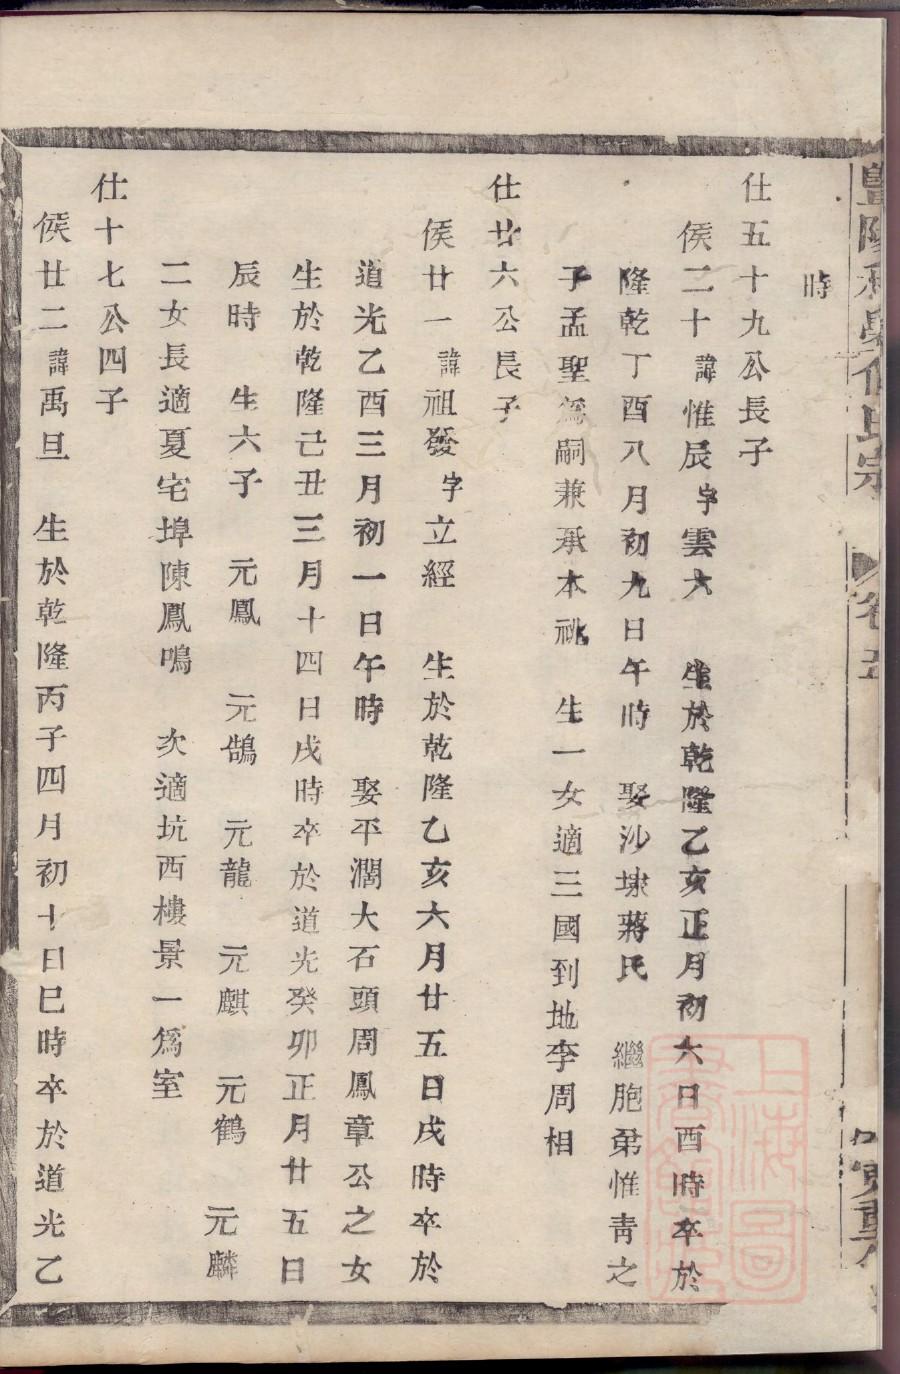 時
仕五十九公長子
侯二十諱惟辰字雲六 生於乾隆乙亥正月初六日酉時卒於
隆乾丁酉八月初九日午時 娶沙埭蔣氏 繼胞弟惟青之
子孟聖為嗣兼承本祧 生一女適三國到地李周相
仕廿六公長子
侯廿一諱祖發字立經 生於乾隆乙亥六月廿五日戌時卒於
道光乙酉三月初一日午時 娶平濶大石頭周鳳章公之女
生於乾隆己丑三月十四日戌時卒於道光癸卯正月廿五日
辰時 生六子 元鳳 元鵠 元龍 元麒 元鶴 元麟
二女長適夏宅埠陳鳳鳴 次適坑西樓景一為室
仕十七公四子
侯廿二諱禹旦 生於乾隆丙子四月初十日巳時卒於道光乙